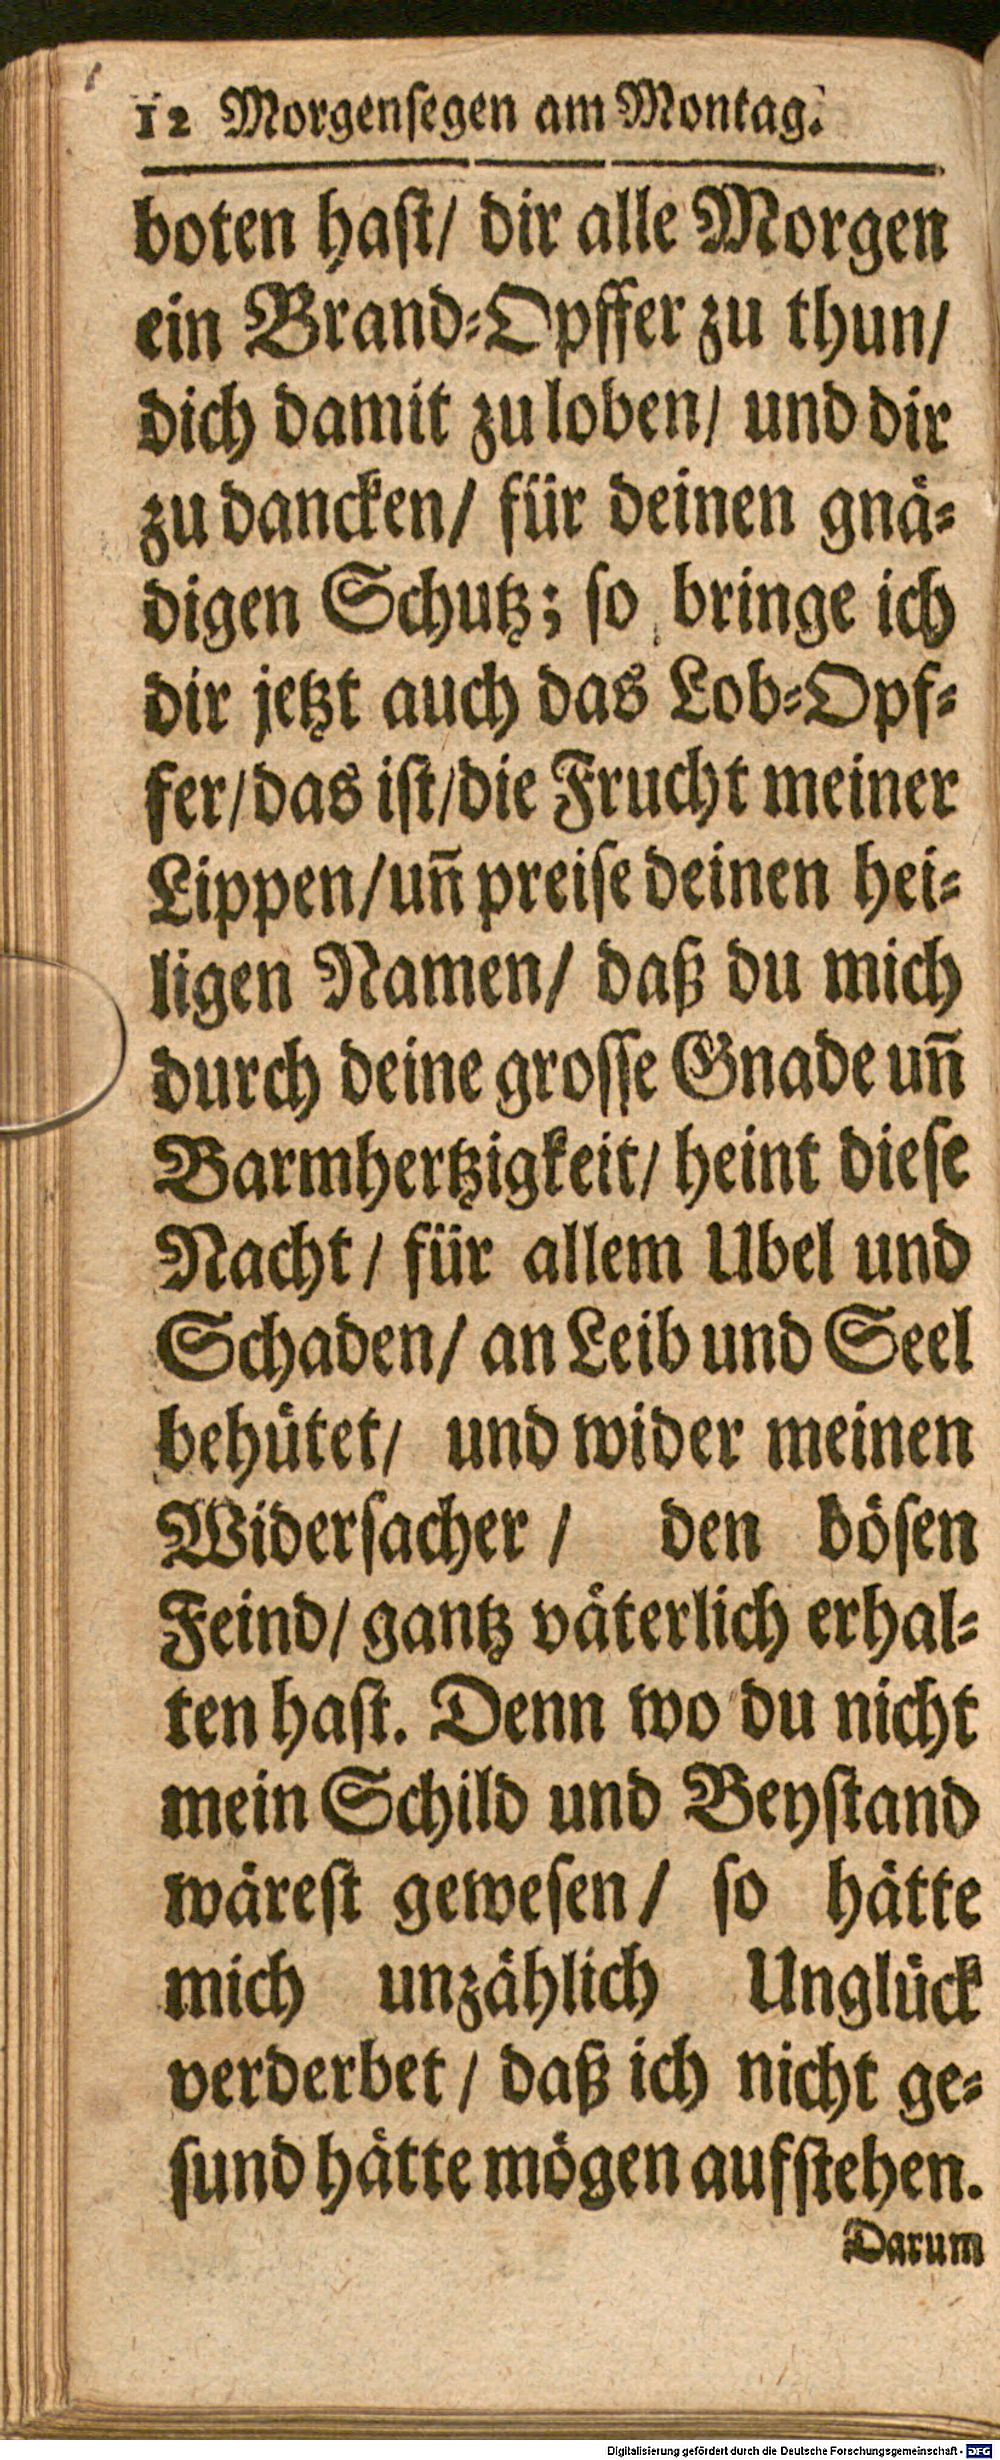 12 Morgenſegen am Montag.
boten haſt/ dir alle Morgen
ein Brand-Opffer zu thun/
dich damit zu loben/ und dir
zu dancken/ für deinen gnaͤ-
digen Schutz; ſo bringe ich
dir jetzt auch das Lob-Opf-
fer/das iſt/die Frucht meiner
Lippen/un̄ preiſe deinen hei-
ligen Namen/ daß du mich
durch deine groſſe Gnade un̄
Barmhertzigkeit/ heint dieſe
Nacht/ für allem Ubel und
Schaden/ an Leib und Seel
behuͤtet/ und wider meinen
Widerſacher/ den boͤſen
Feind/ gantz vaͤterlich erhal-
ten haſt. Denn wo du nicht
mein Schild und Beyſtand
waͤreſt geweſen/ ſo haͤtte
mich unzaͤhlich Ungluͤck
verderbet/ daß ich nicht ge-
ſund haͤtte moͤgen aufſtehen.
Darum
Digitalisierung gefördert durch die Deutsche Forschungsgemeinschaft - DFG